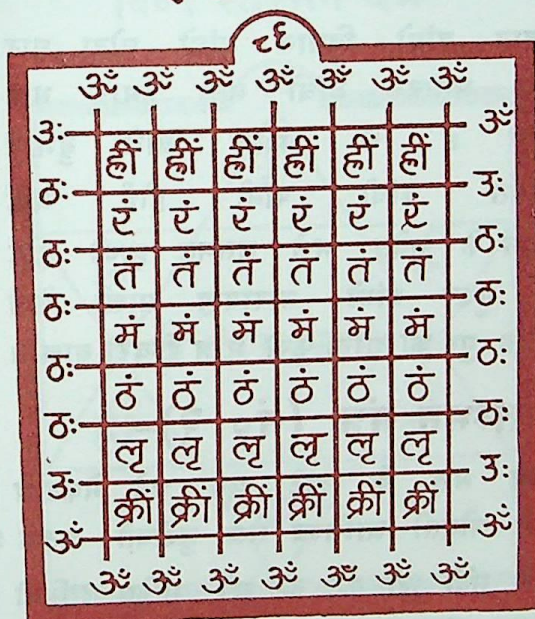 २६
ॐ ॐ ॐ ॐ ॐ ॐ ॐ
उः ॐ
ह्रीं ह्रीं ह्रीं ह्रीं ह्रीं ह्रीं
ठः उः
रं रं रं रं रं रं
ठः ठः
तं तं तं तं तं तं
ठः ठः
मं मं मं मं मं मं
ठः ठः
ठं ठं ठं ठं ठं ठं
ठः ठः
लृ लृ लृ लृ लृ लृ
उः उः
क्रीं क्रीं क्रीं क्रीं क्रीं क्रीं
ॐ ॐ
ॐ ॐ ॐ ॐ ॐ ॐ ॐ